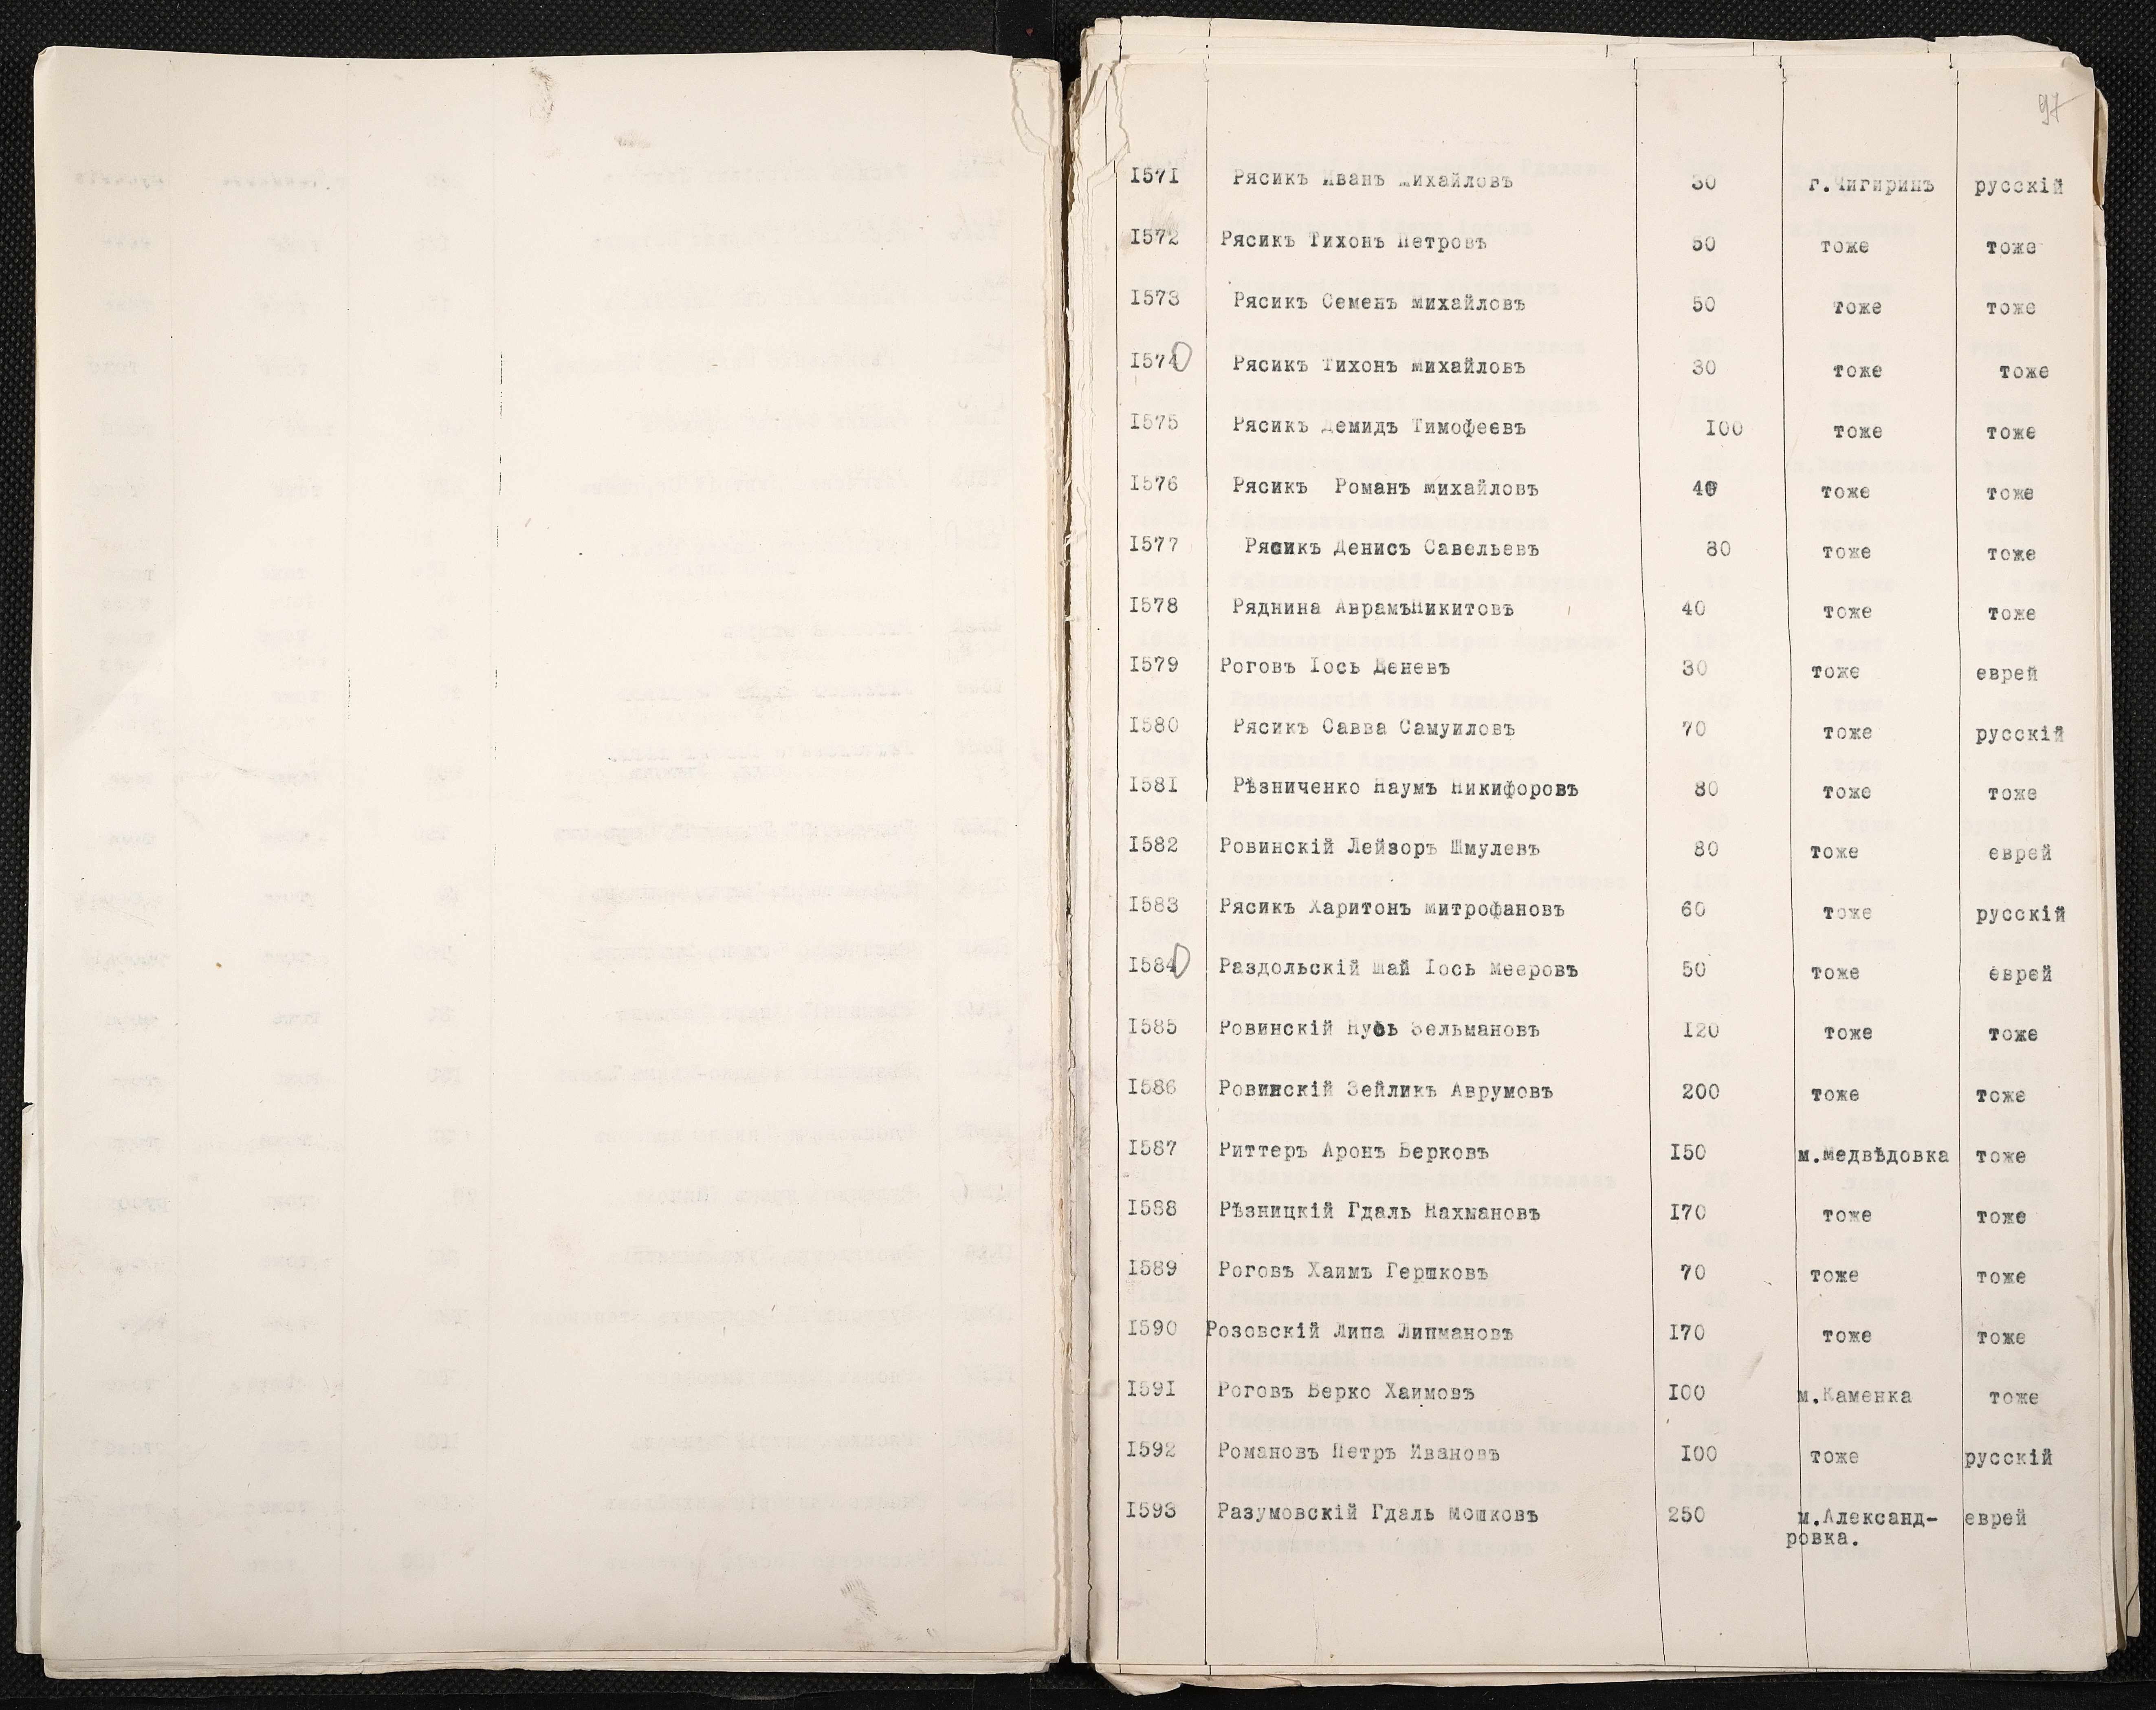 97
1571 Рясикъ Иванъ Михайловъ 30 г.Чигиринъ русскій
1572 Рясикъ Тихонъ Петровъ 50 тоже тоже
1573 Рясикъ Семенъ Михайловъ 50 тоже тоже
1574 Рясикъ Тихонъ Михайловъ 30 тоже тоже
1575 Рясикъ Демидъ Тимофеевъ 100 тоже тоже
1576 Рясикъ Романъ Михайловъ 40 тоже тоже
1577 Рясикъ Денисъ Савельевъ 80 тоже тоже
1578 Ряднина АврамъНикитовъ 40 тоже тоже
1579 Роговъ Іось Деневъ 30 тоже еврей
1580 Рясикъ Савва Самуиловъ 70 тоже русскій
1581 Рѣзниченко Наумъ Никифоровъ 80 тоже тоже
1582 Ровинскій Лейзоръ Шмулевъ 80 тоже еврей
1583 Рясикъ Харитонъ Митрофановъ 60 тоже русскій
1584 Раздольскій Шай Іось Мееровъ 50 тоже еврей
1585 Ровинскій Нусь Зельмановъ 120 тоже тоже
1586 Ровинскій Зейликъ Аврумовъ 200 тоже тоже
1587 Риттеръ Аронъ Берковъ 150 м.Медвѣдовка тоже
1588 Рѣзницкій Гдаль Нахмановъ 170 тоже тоже
1589 Роговъ Хаимъ Гершковъ 70 тоже тоже
1590 Розовскій Липа Липмановъ 170 тоже тоже
1591 Роговъ Берко Хаимовъ 100 м.Каменка тоже
1592 Романовъ Петръ Ивановъ 100 тоже русскій
1593 Разумовскій Гдаль Мошковъ 250 м.Александ- еврей
ровка.